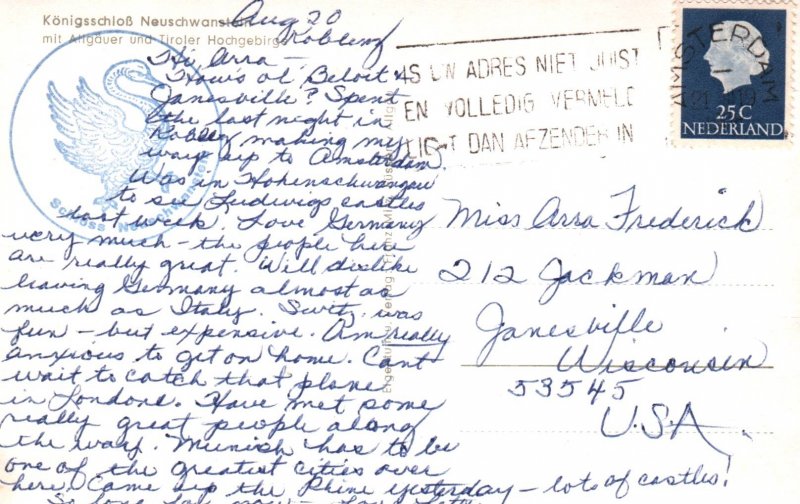 Königsschloß Neuschwanstein
mit Allgäuer und Tiroler Hochgebirge
Aug 20
Koblenz
Hi Arra -
How's ol' Beloit &
Janesville? Spent
the last night in
Koblenz making my
way up to Amsterdam.
Was in Hohenschwangau
to see Ludwigs castles
last week. Love Germany
very much - the people here
are really great. Will dislike
leaving Germany almost as
much as Italy. Switz. was
fun - but expensive. Am really
anxious to get on home. Can't
wait to catch that plane
in London. Have met some
really great people along
the way. Munich has to be
one of the greatest cities over
here. Came up the Rhine yesterday - lots of castles!
So long
Schloss Neuschwanstein
ALS UW ADRES NIET JUIST
EN VOLLEDIG VERMELD
LIGT DAN AFZENDER IN
AMSTERDAM
25C
NEDERLAND
Miss Arra Frederick
212 Jackman
Janesville
Wisconsin
53545
U.S.A.